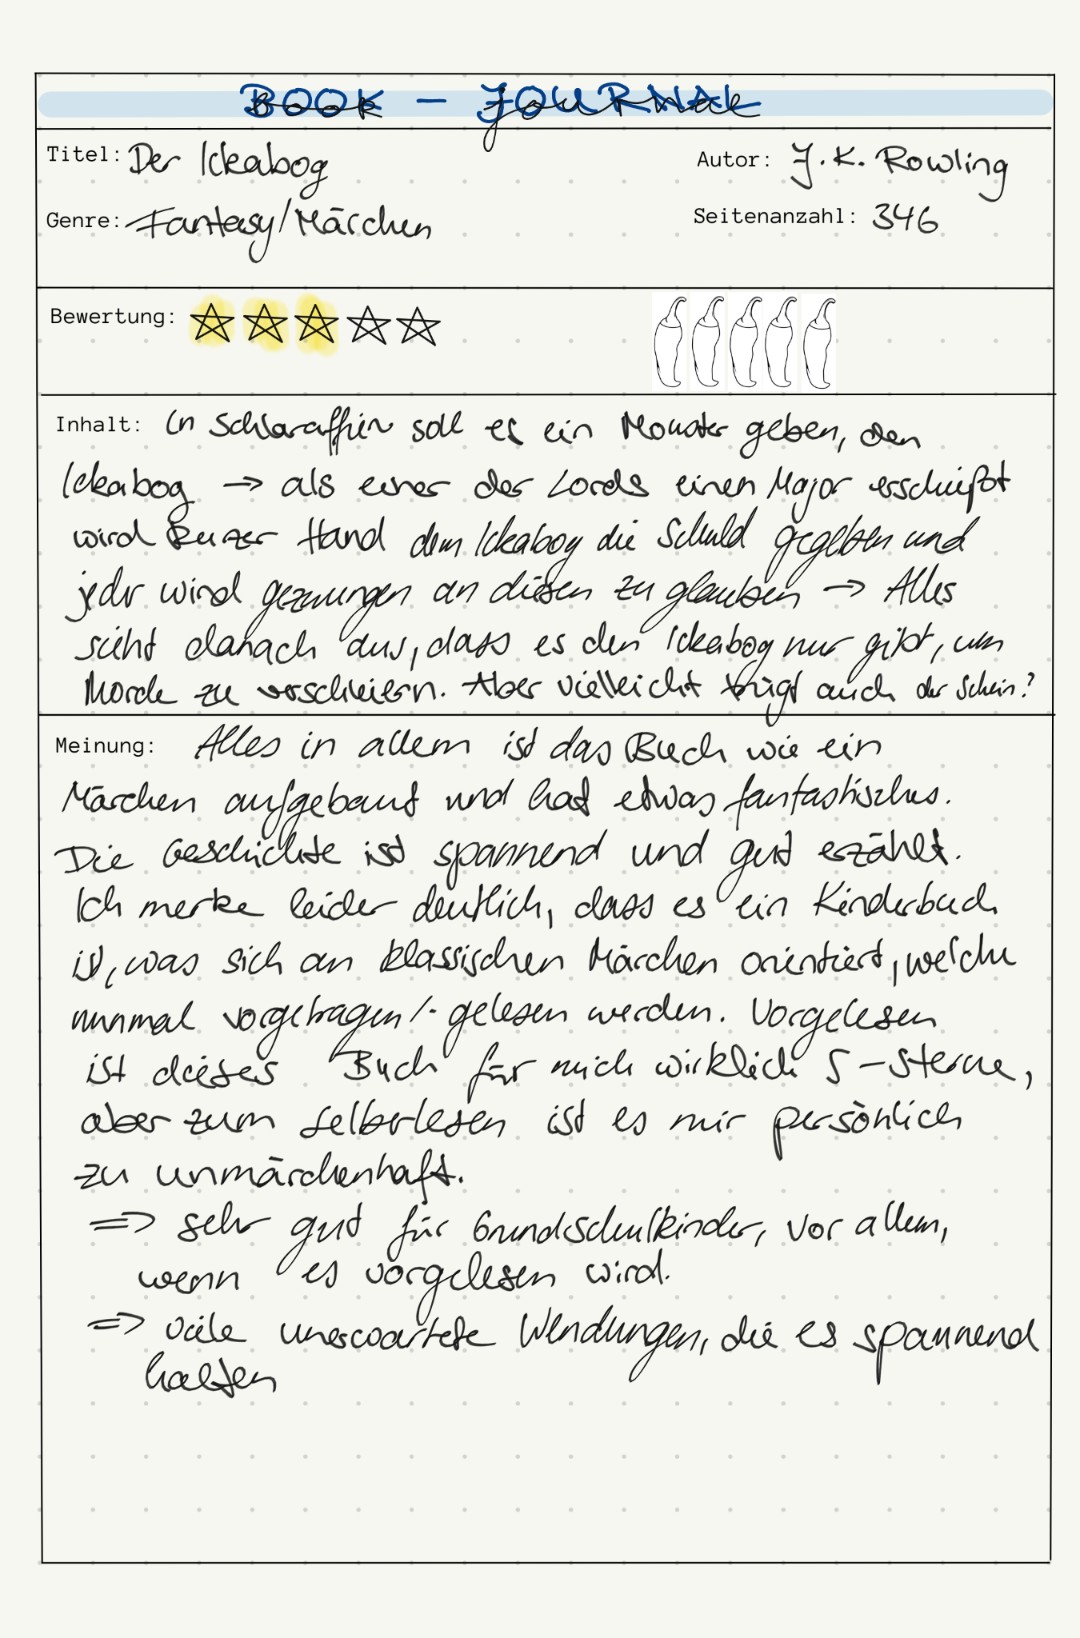 BOOK - JOURNAL
Titel: Der Ickabog
Autor: J.K. Rowling
Genre: Fantasy/Märchen
Seitenanzahl: 346
Bewertung:
Inhalt: In Schlaraffien soll es ein Monster geben, den
Ickabog → als einer der Lords einen Major erschießt
wird kurzer Hand dem Ickabog die Schuld gegeben und
jeder wird gezwungen an diesen zu glauben → Alles
sieht danach aus, dass es den Ickabog nur gibt, um
Morde zu verschleiern. Aber vielleicht trügt auch der Schein?
Meinung: Alles in allem ist das Buch wie ein
Märchen aufgebaut und hat etwas fantastisches.
Die Geschichte ist spannend und gut erzählt.
Ich merke leider deutlich, dass es ein Kinderbuch
ist, was sich an klassischen Märchen orientiert, welche
nunmal vorgetragen/-gelesen werden. Vorgelesen
ist dieses Buch für mich wirklich 5-Sterne,
aber zum selberlesen ist es mir persönlich
zu unmärchenhaft.
⇒ sehr gut für Grundschulkinder, vor allem,
wenn es vorgelesen wird.
⇒ viele unerwartete Wendungen, die es spannend
halten